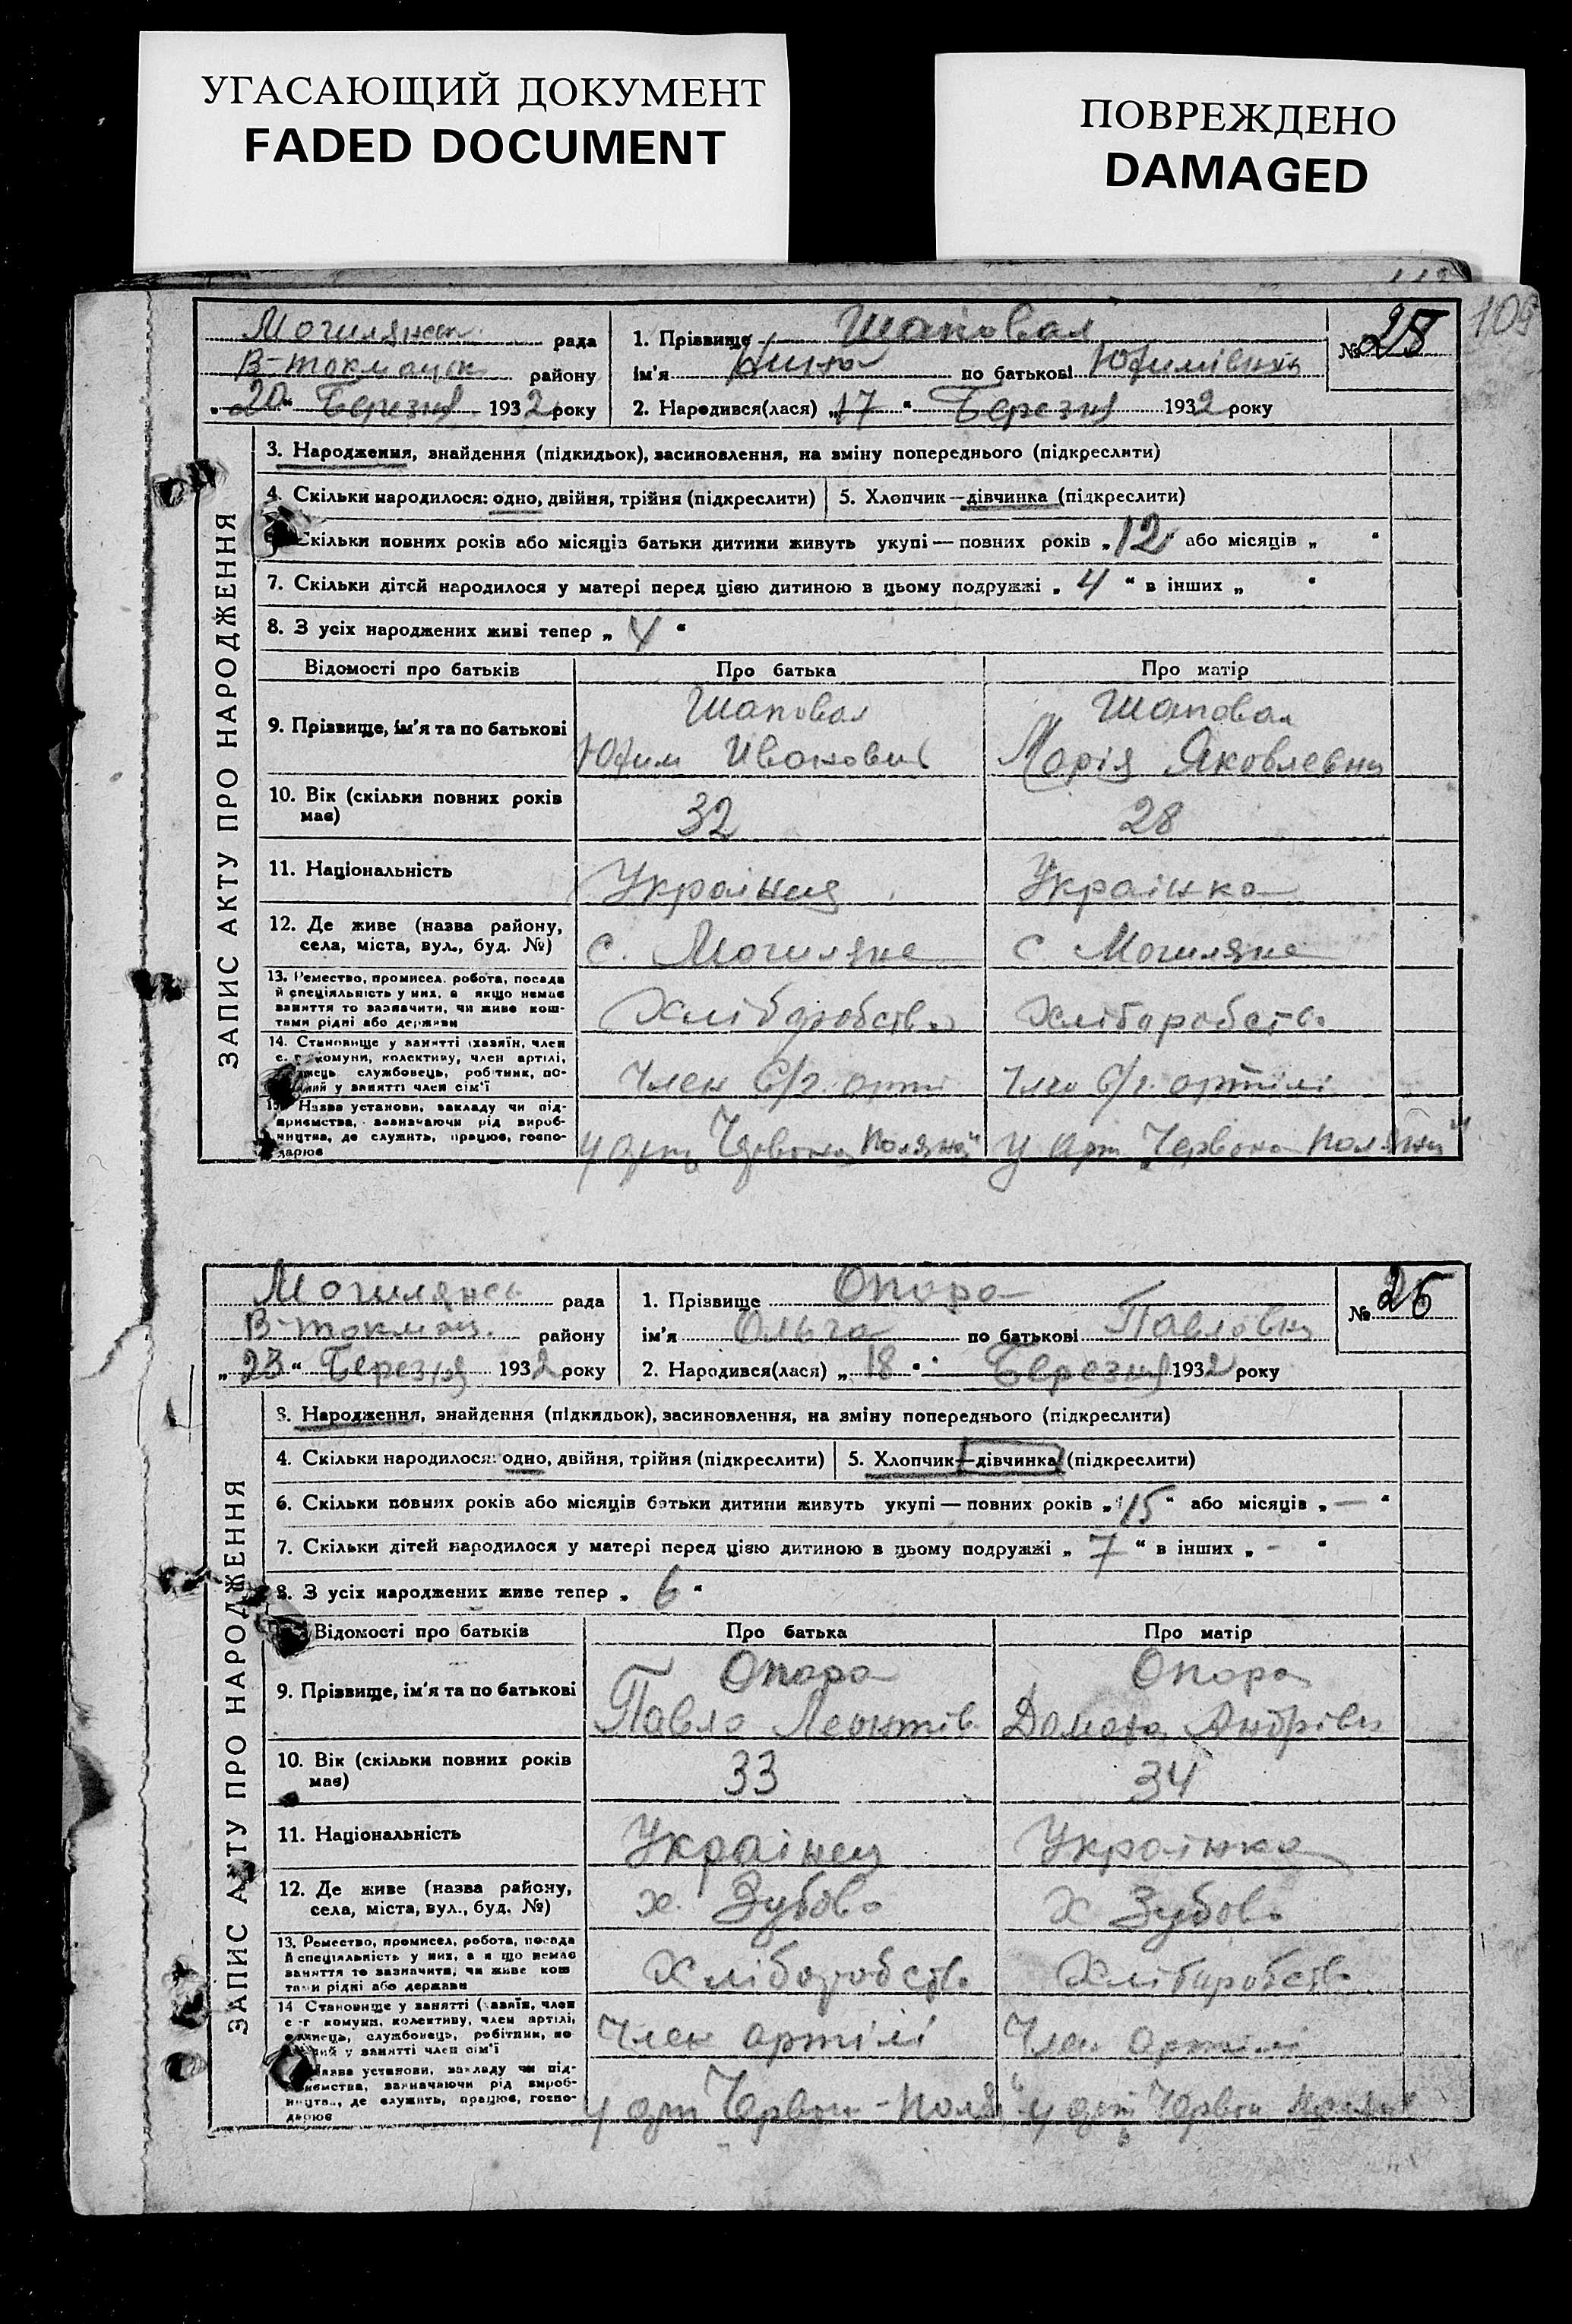 УГАСАЮЩИЙ ДОКУМЕНТ
FADED DOCUMENT
ПОВРЕЖДЕНО
DAMAGED
109
Могилянськ рада
В-токмацьк району
„20“ Березня 1932 року
1. Прізвище Шаповал
ім'я Нина по батькові Юхимівна
2. Народився(лася) „17“ Березня 1932 року
№ 25
ЗАПИС АКТУ ПРО НАРОДЖЕННЯ
3. Народження, знайдення (підкидьок), засиновлення, на зміну попереднього (підкреслити)
4. Скільки народилося: одно, двійня, трійня (підкреслити) 5. Хлопчик—дівчинка (підкреслити)
Скільки повних років або місяців батьки дитини живуть укупі — повних років „12“ або місяців „ “
7. Скільки дітей народилося у матері перед цією дитиною в цьому подружжі „4“ в інших „ “
8. З усіх народжених живі тепер „4“
Відомості про батьків Про батька Про матір
9. Прізвище, ім'я та по батькові
Шаповал Шаповал
Юхим Иванович Марія Яковлевна
10. Вік (скільки повних років має) 32 28
11. Національність Українец Українка
12. Де живе (назва району, села, міста, вул., буд. №) с. Могиляне с Могиляне
13. Ремество, промисел, робота, посада
й спеціяльність у них, а якщо немає
заняття то зазначити, чи живе кош-
тами рідні або держави
Хліборобство Хліборобство
14. Становище у занятті (хазяїн, член
с. г. комуни, колективу, член артілі,
службовець, робітник, по-
у занятті член сім'ї
Член С/г. арті Член С/г. артілі
Назва установи, закладу чи під-
приємства, зазначаючи рід вироб-
ництва, де служить, працює, госпо-
дарює
у арт Червона Поляна" у арт Червона Поляна"
Могилянсь рада
В-токмац. району
„23“ Березня 1932 року
1. Прізвище Опара
ім'я Ольга по батькові Павловна
2. Народився(лася) „18“ Березня 1932 року
№ 26
ЗАПИС АКТУ ПРО НАРОДЖЕННЯ
3. Народження, знайдення (підкидьок), засиновлення, на зміну попереднього (підкреслити)
4. Скільки народилося: одно, двійня, трійня (підкреслити) 5. Хлопчик—дівчинка (підкреслити)
6. Скільки повних років або місяців батьки дитини живуть укупі — повних років „15“ або місяців „—“
7. Скільки дітей народилося у матері перед цією дитиною в цьому подружжі „7“ в інших „-“
8. З усіх народжених живе тепер „6“
Відомості про батьків Про батька Про матір
9. Прізвище, ім'я та по батькові
Опара Опара
Павло Леонтів Андрівн
10. Вік (скільки повних років має) 33 34
11. Національність Українец Українка
12. Де живе (назва району, села, міста, вул., буд. №) х. Зубово х Зубово
13. Ремество, промисел, робота, посада
й спеціяльність у них, а якщо немає
заняття то зазначити, чи живе кош
тами рідні або держави
Хліборобство Хліборобство
14 Становище у занятті (хазяїн, член
с-г комуни, колективу, член артілі,
одинець, службовець, робітник, по
у занятті член сім'ї
Член артілі Член артілі
Назва установи, закладу чи під-
приємства, зазначаючи рід вироб-
ництва, де служить, працює, госпо-
дарює
у арт Червон-Поля" у арт Червон